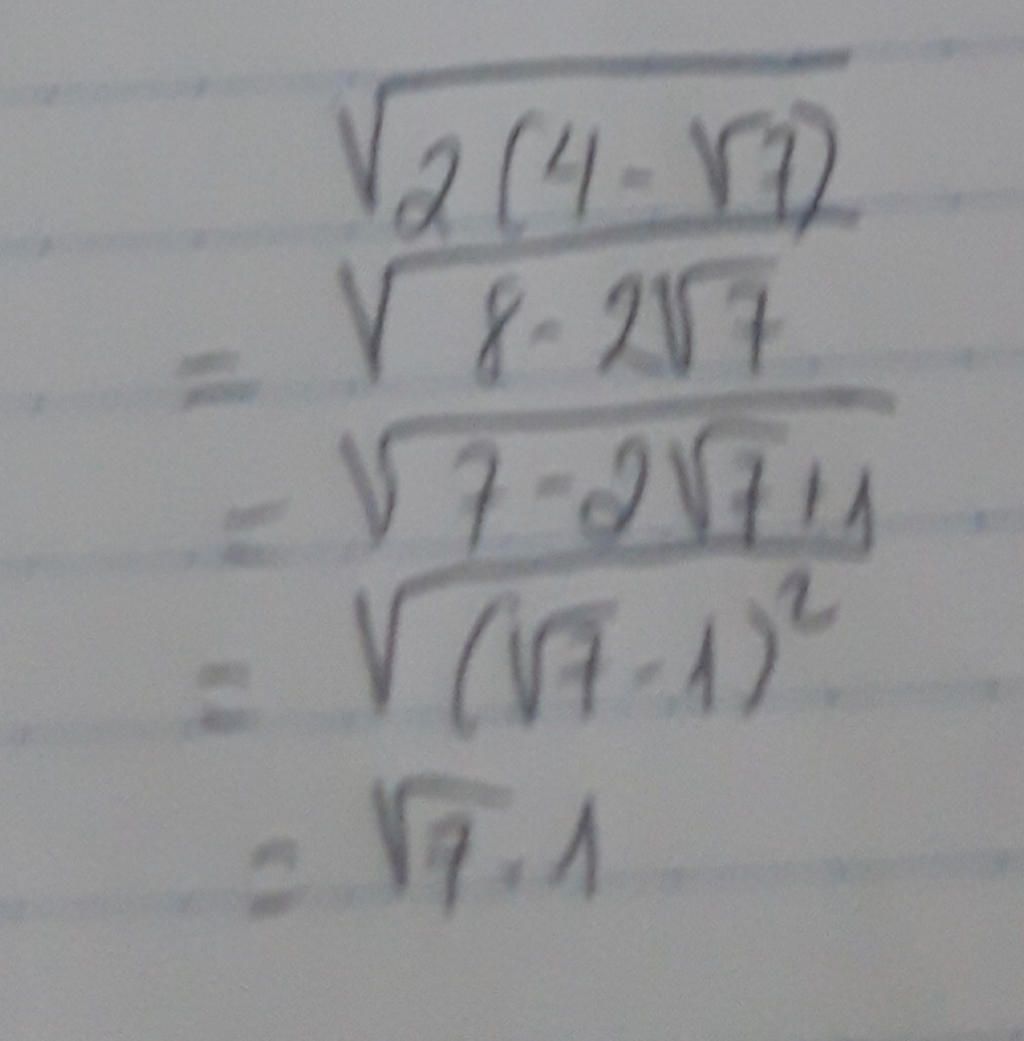 √(2(4 - √7))
= √(8 - 2√7)
= √(7 - 2√7 + 1)
= √((√7 - 1)²)
= √7 - 1